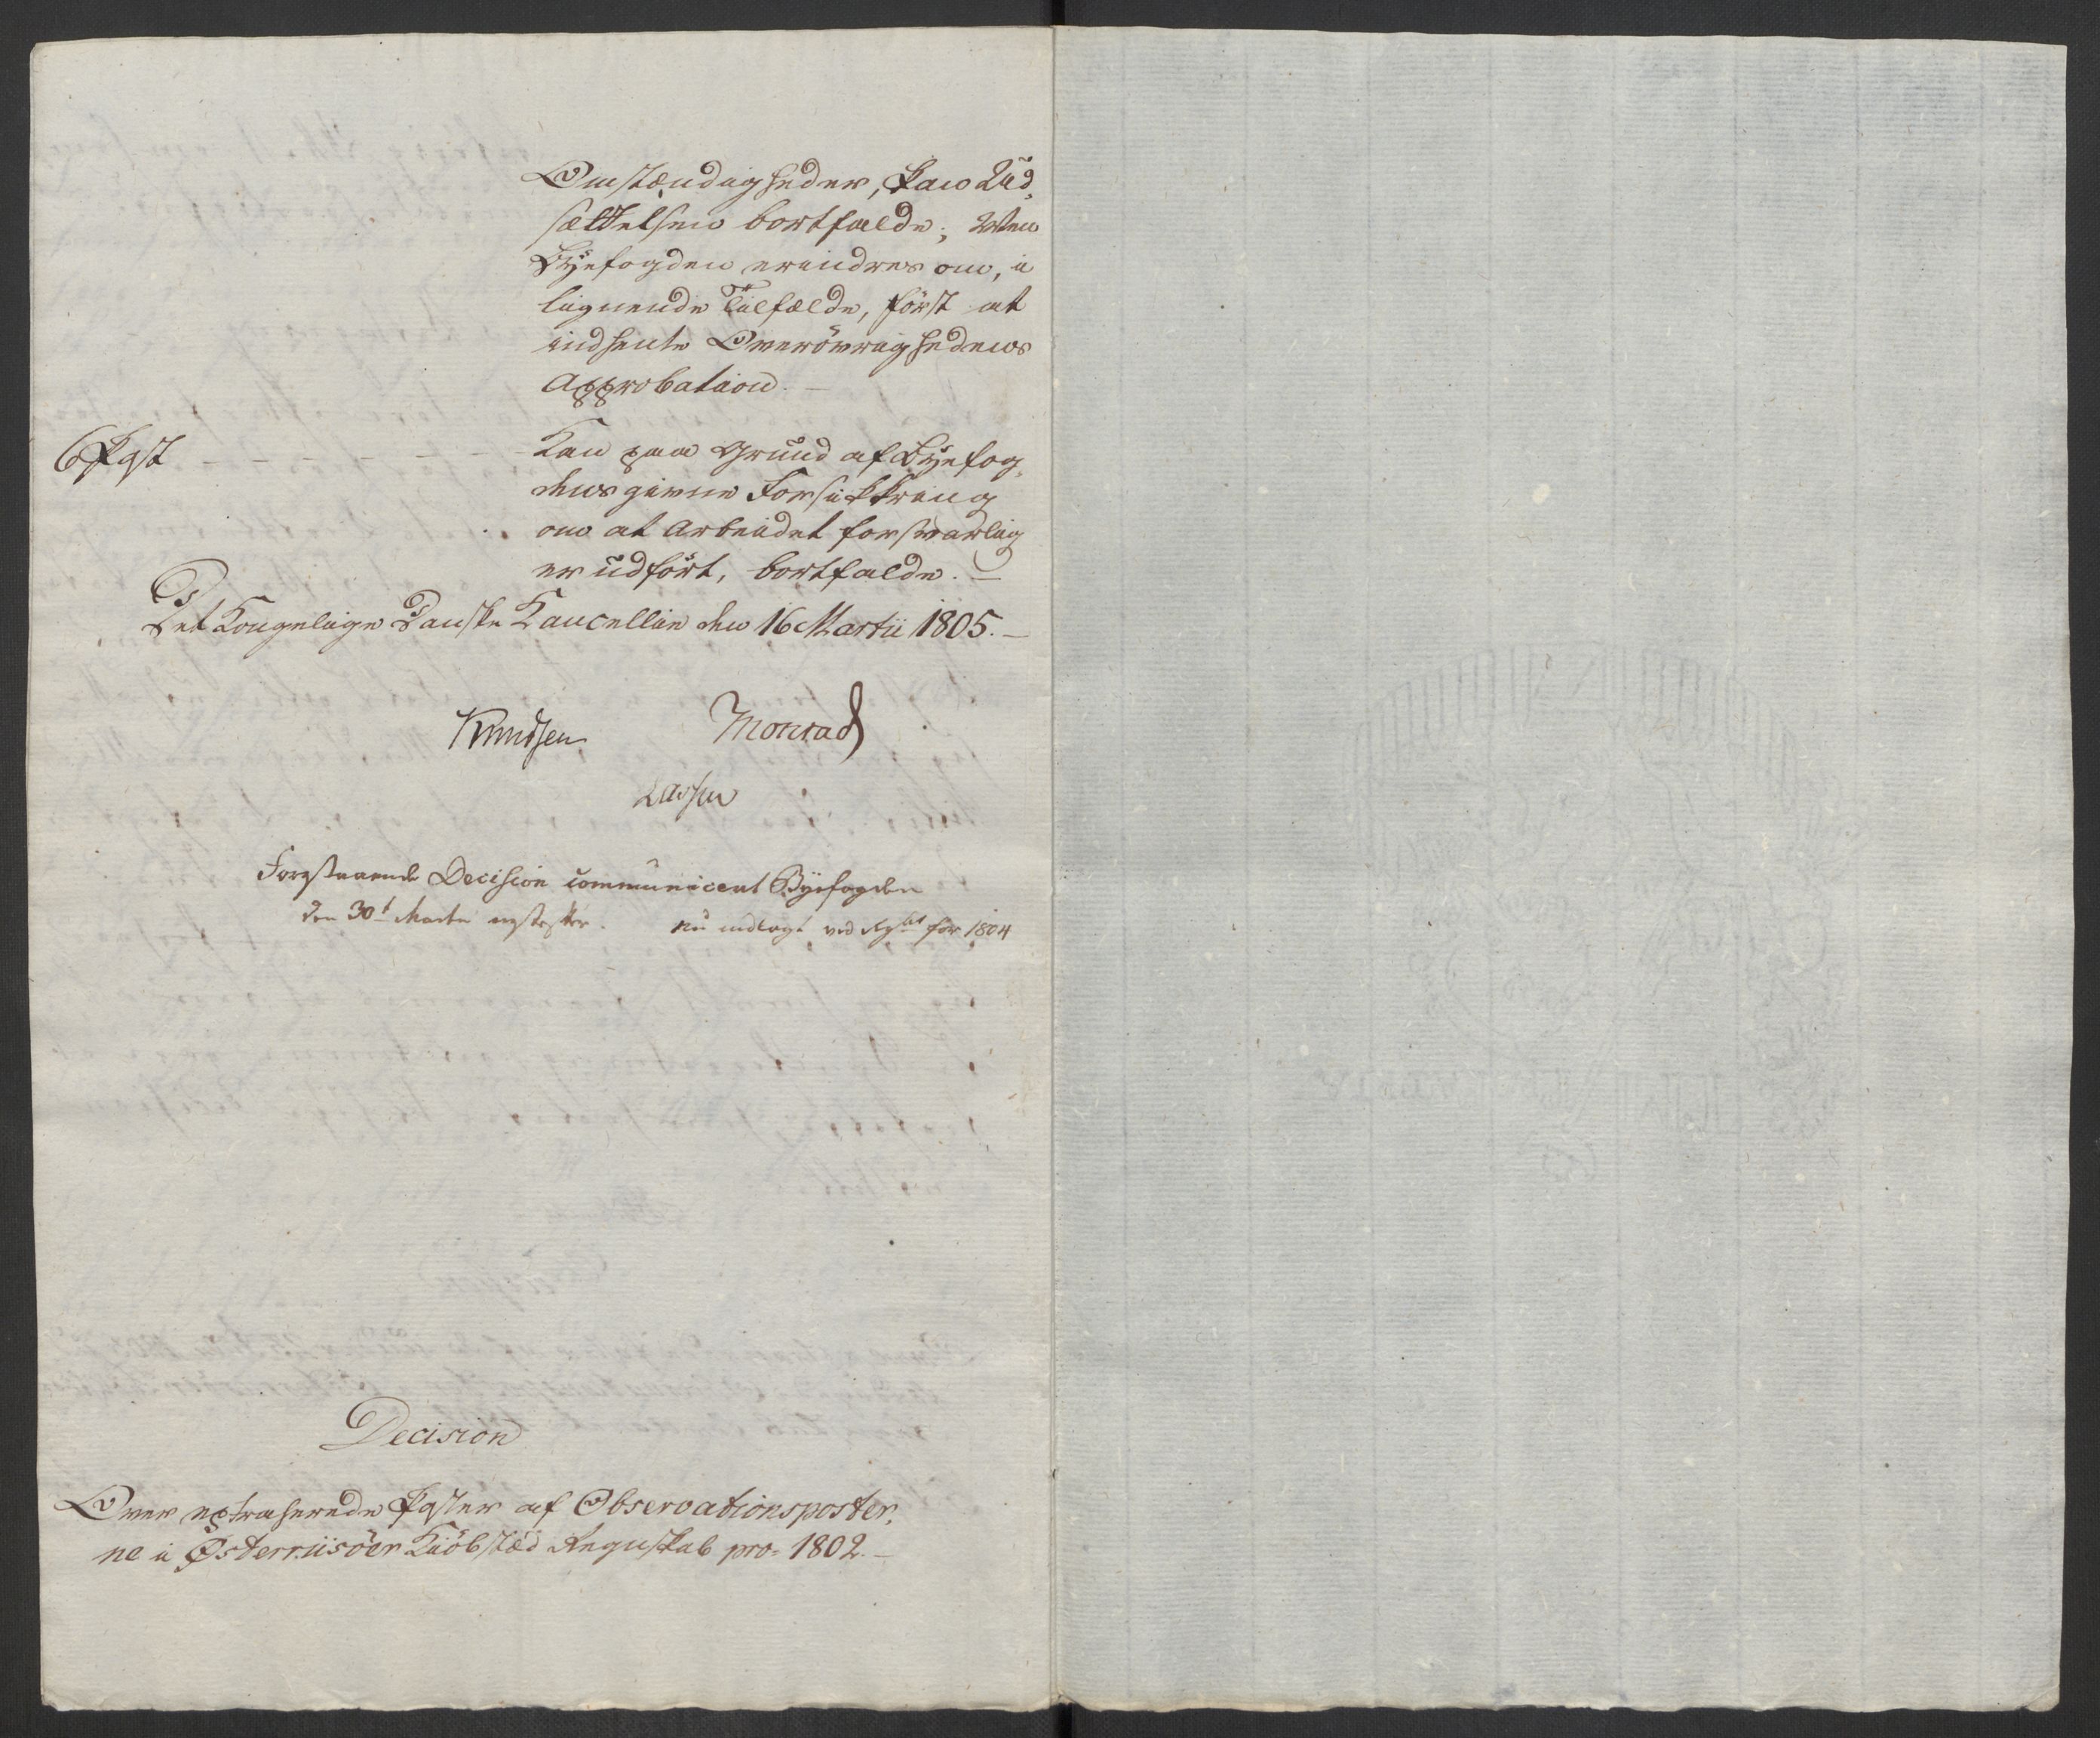 Omstændigheder, kan Ud-
sættelsen bortfalde; Men
Byefogden erindres om, i
lignende Tilfælde, först at
indhente Overövrighedens
Approbation. —
6 Post — — — — — — Kan paa Grund af Byefog-
dens givne Forsikkring
om at Arbeidet forsvarlig
er udfört, bortfalde. —
Det Kongelige Danske Cancellie den 16 Martii 1805. —
Knudsen Monrad
Lassen
Foranstaaende Decision communiceret Byefogden
den 30t Martii nu indlagt ved for 1804
Decision
Over extraherede Poster af Observationsposter-
ne i Österriisöer Kiöbstæd Regnskab pro. 1802. —